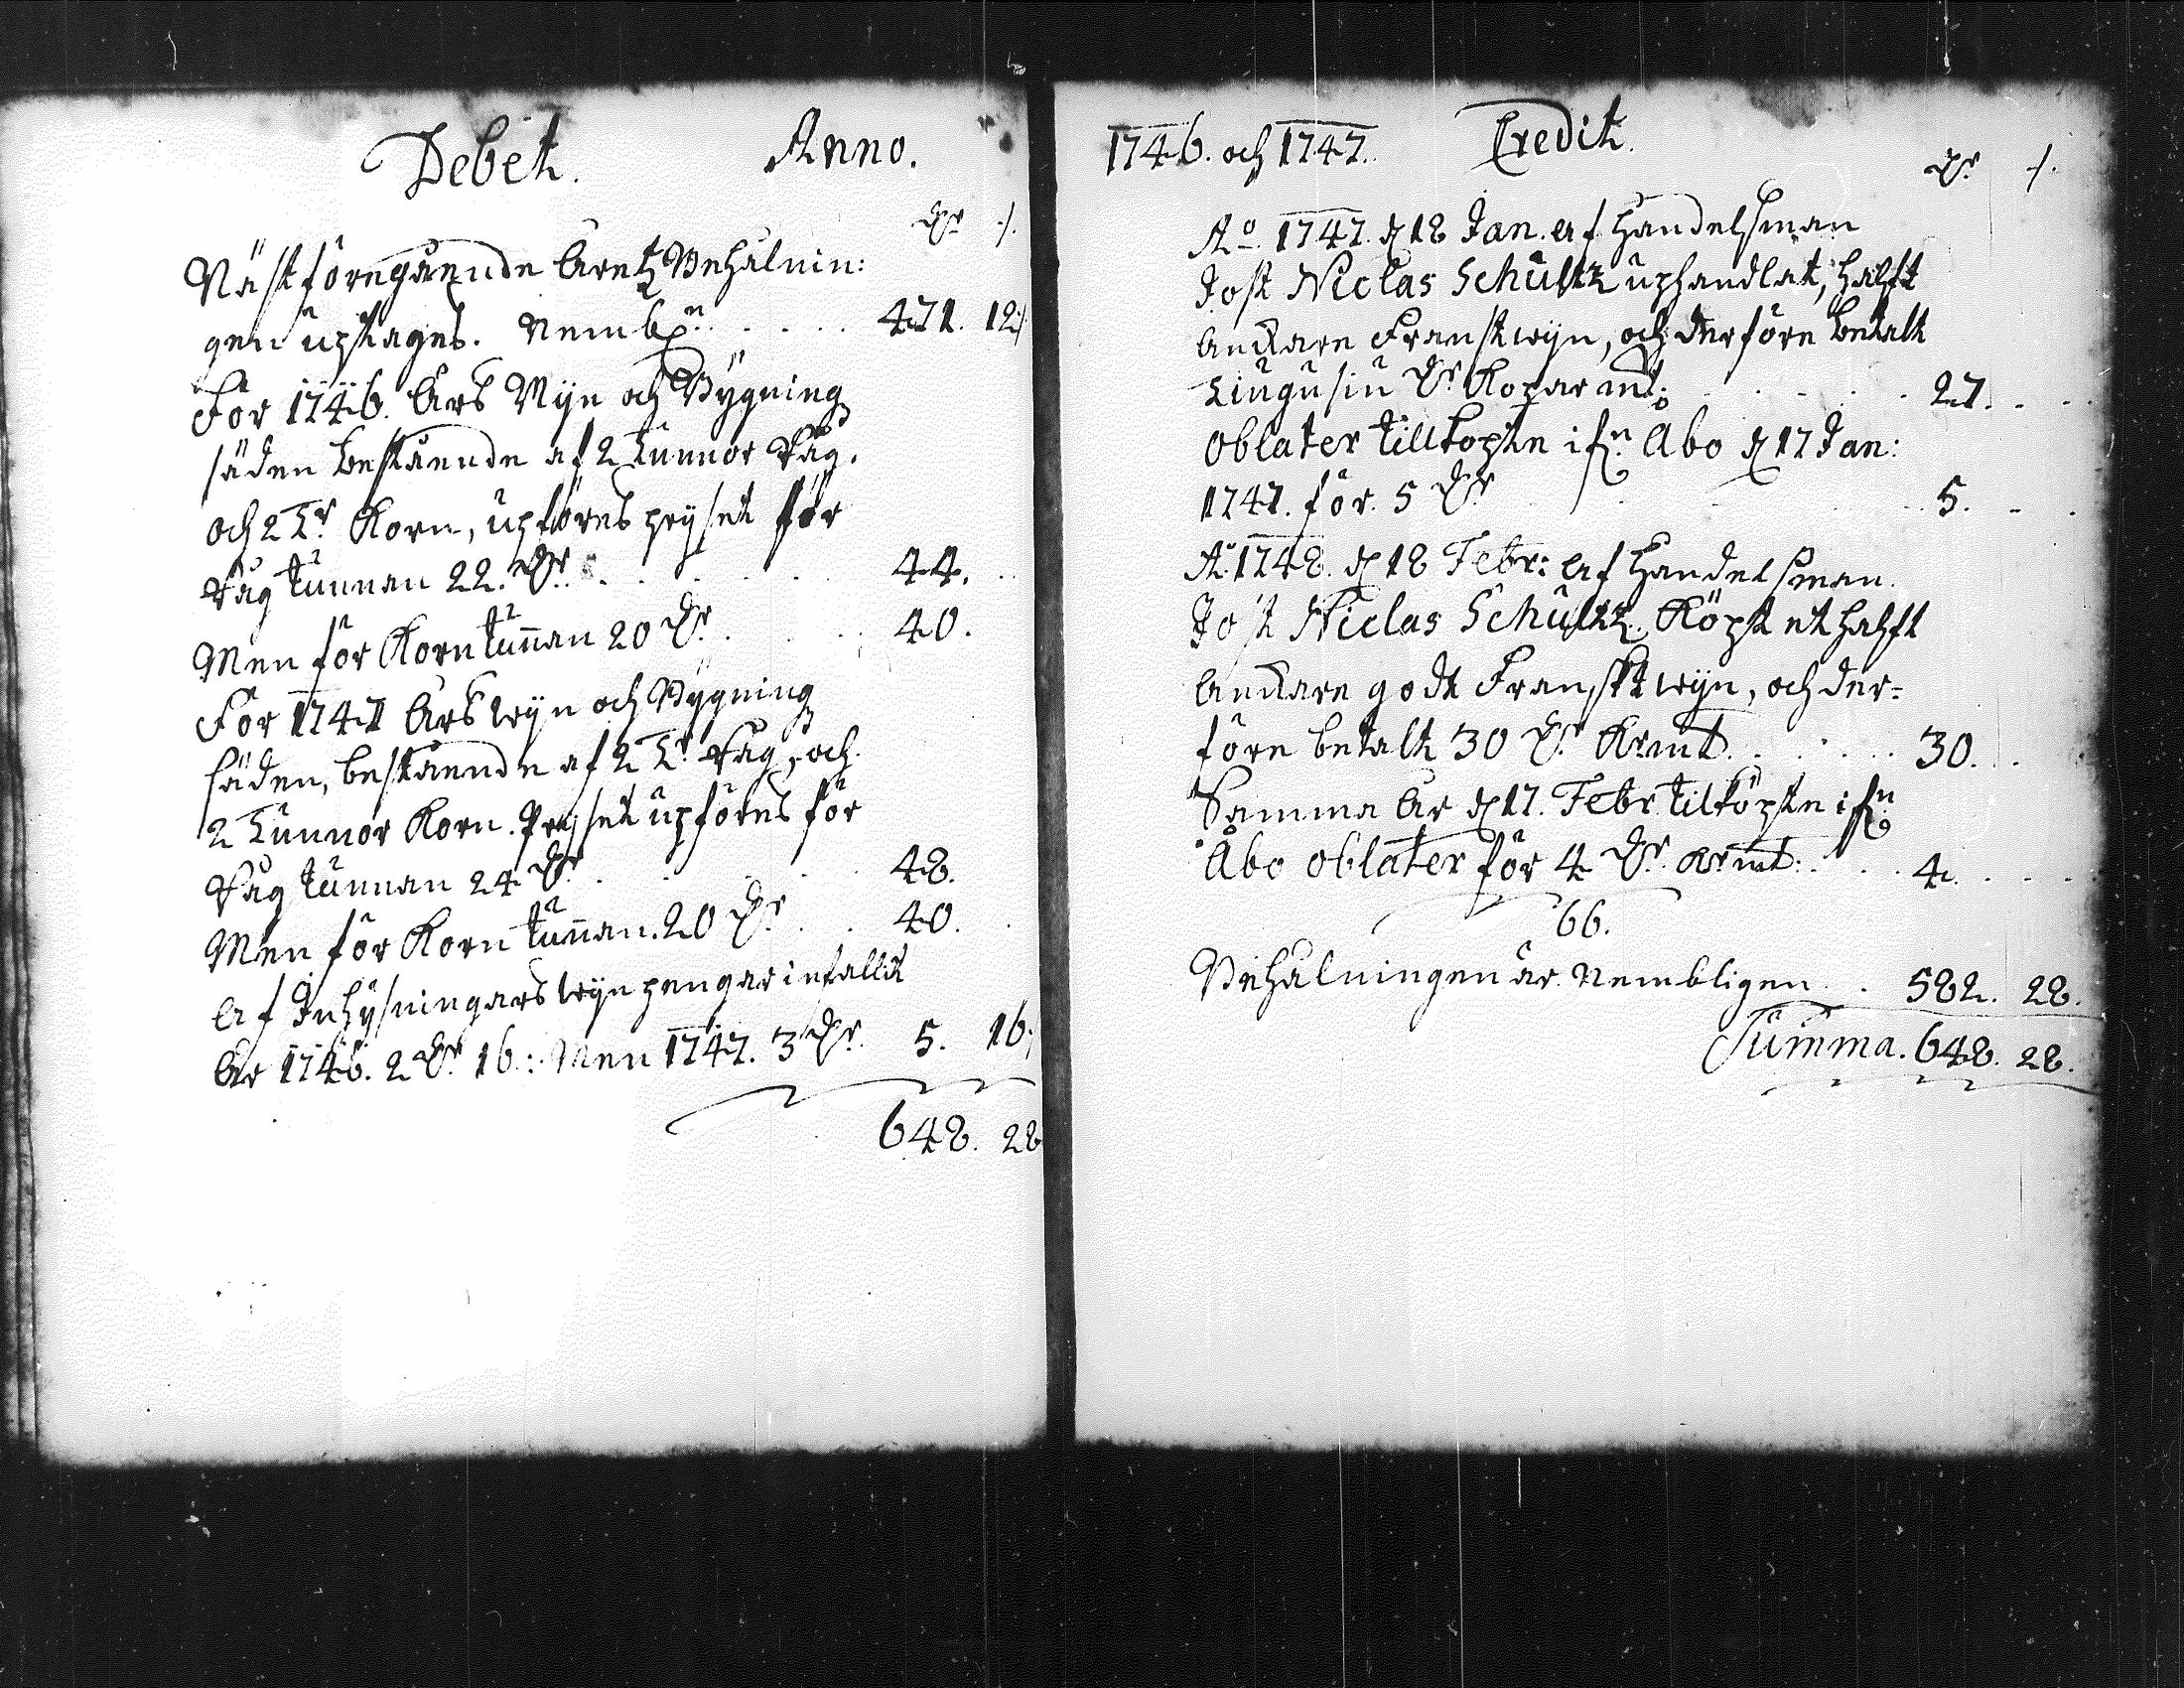 Debet. Anno.
Dr ./.
Näst föregående Åretz Behålnin:
gen uptages. Nembl:n . . . . 471. 12
För 1746. Års Wijn och Bygning
säden bestående af 2 Tunnor Råg,
och 2 T:r Korn, upföres prijset för
Råg tunnan 22. Dr . . . . 44.
Men för Korn tunnan 20 Dr . . . 40.
För 1747 Års wijn och Bygning
säden, bestående af 2 T:r Råg, och
2 Tunnor Korn. Prijset upföres för
Råg tunnan 24 Dr . . . 48.
Men för Korn tunnan. 20 Dr . . 40.
Af Inhysningars wijn pengar infallit
År 1746. 2 Dr 16.: Men 1747. 3 Dr. 5. 16.
648. 28
1746. och 1747. Credit.
Dr ./.
Ao 1747. d 18 Jan. af Handelsman
Jost Niclas Schultz uphandlat, halft
Anckare Franst wijn, och derföre betalt
Tiugusiu Dr Kopar mt: . . . . 27. . .
Oblater tillköpte ifn Åbo d 17 Jan:
1747. för. 5 Dr . . . 5. . .
Ao 1748. d 18 Febr: af Handelsman.
Jost Niclas Schultz. Köpt et halft
Anckare godt Franskt wijn, och der=
före betalt 30 Dr Krmt. . . . . 30. .
Samma År d 17. Febr. tilköpte ifn
Åbo oblater för 4 Dr. Krmt: . . . 4. . . .
66.
Behålningen är. Nembligen . . 582. 28.
Summa. 648. 28.